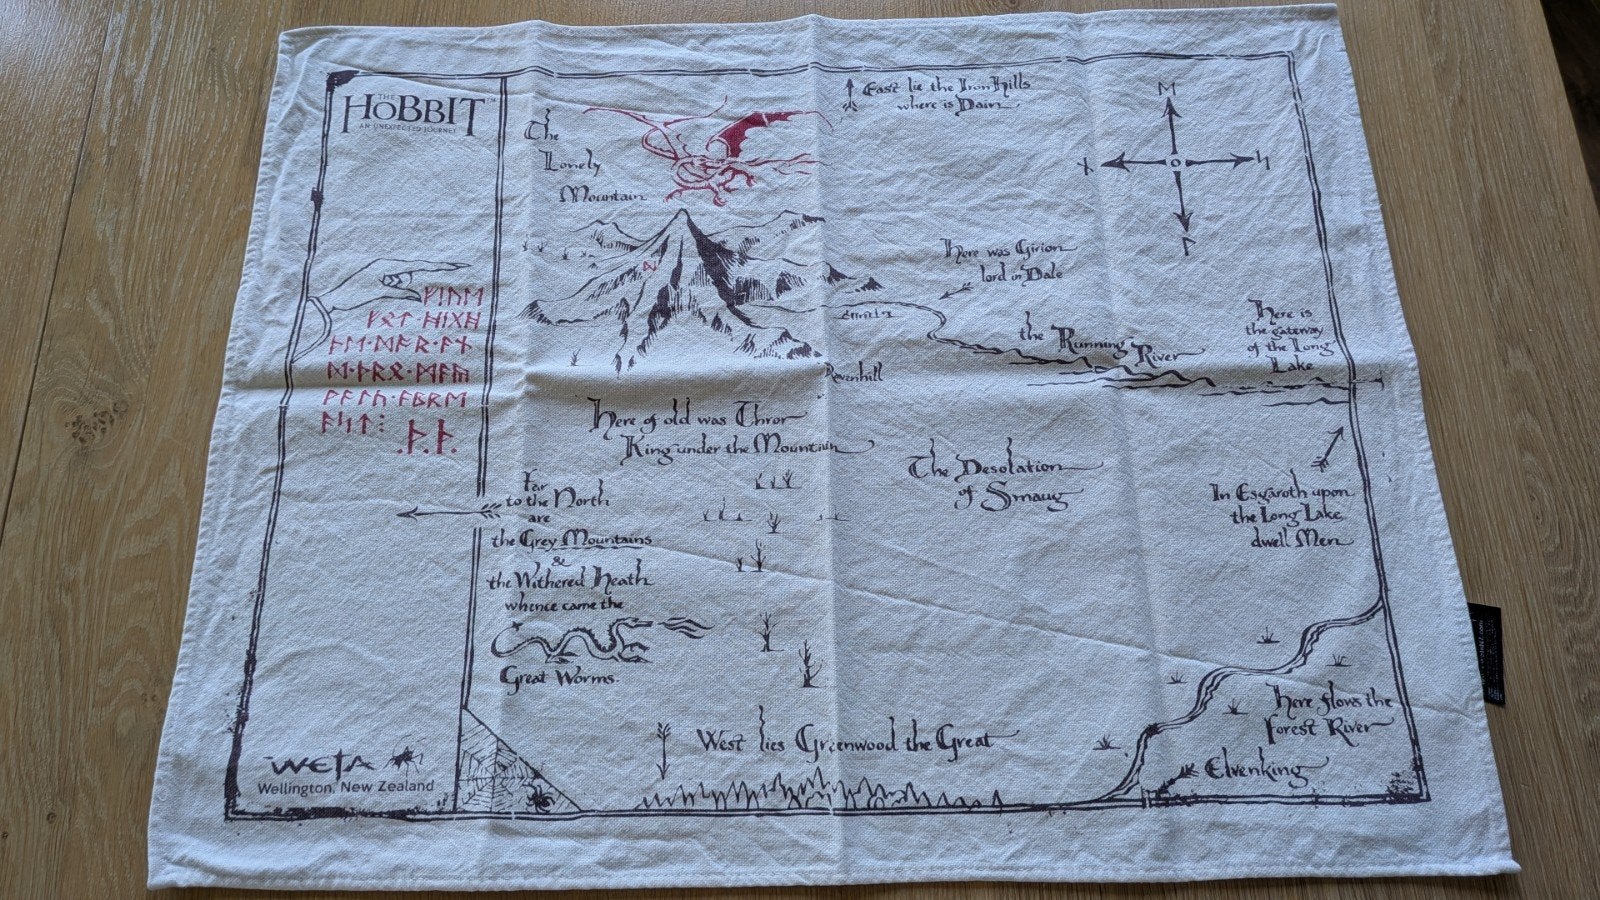 THE
HOBBIT™
AN UNEXPECTED JOURNEY
ᚠᛁᚢᛖ
ᚠᛟᛏ ᚻᛁᚷᚻ
ᚦᛖ·ᛞᚩᚱ·ᚪᚾ
ᛞ·ᚦᚱᛟ·ᛗᚪᚣ
ᚹᚪᛚᚳ·ᚪᛒᚱᛖ
ᚪᛋᛏ⁝
.ᚦ.ᚦ.
WETA
Wellington, New Zealand
The
Lonely
Mountain
ᛞ
East lie the Iron Hills
where is Dain
ᛖ
ᚾ
ᛋ
ᚹ
Here was Girion
lord in Dale
the Running River
Ravenhill
Here is
the gateway
of the Long
Lake
Here of old was Thror
King under the Mountain
The Desolation
of Smaug
In Esgaroth upon
the Long Lake
dwell Men
Far
to the North
are
the Grey Mountains
&
the Withered Heath
whence came the
Great Worms.
West lies Greenwood the Great
Here flows the
Forest River
Elvenking